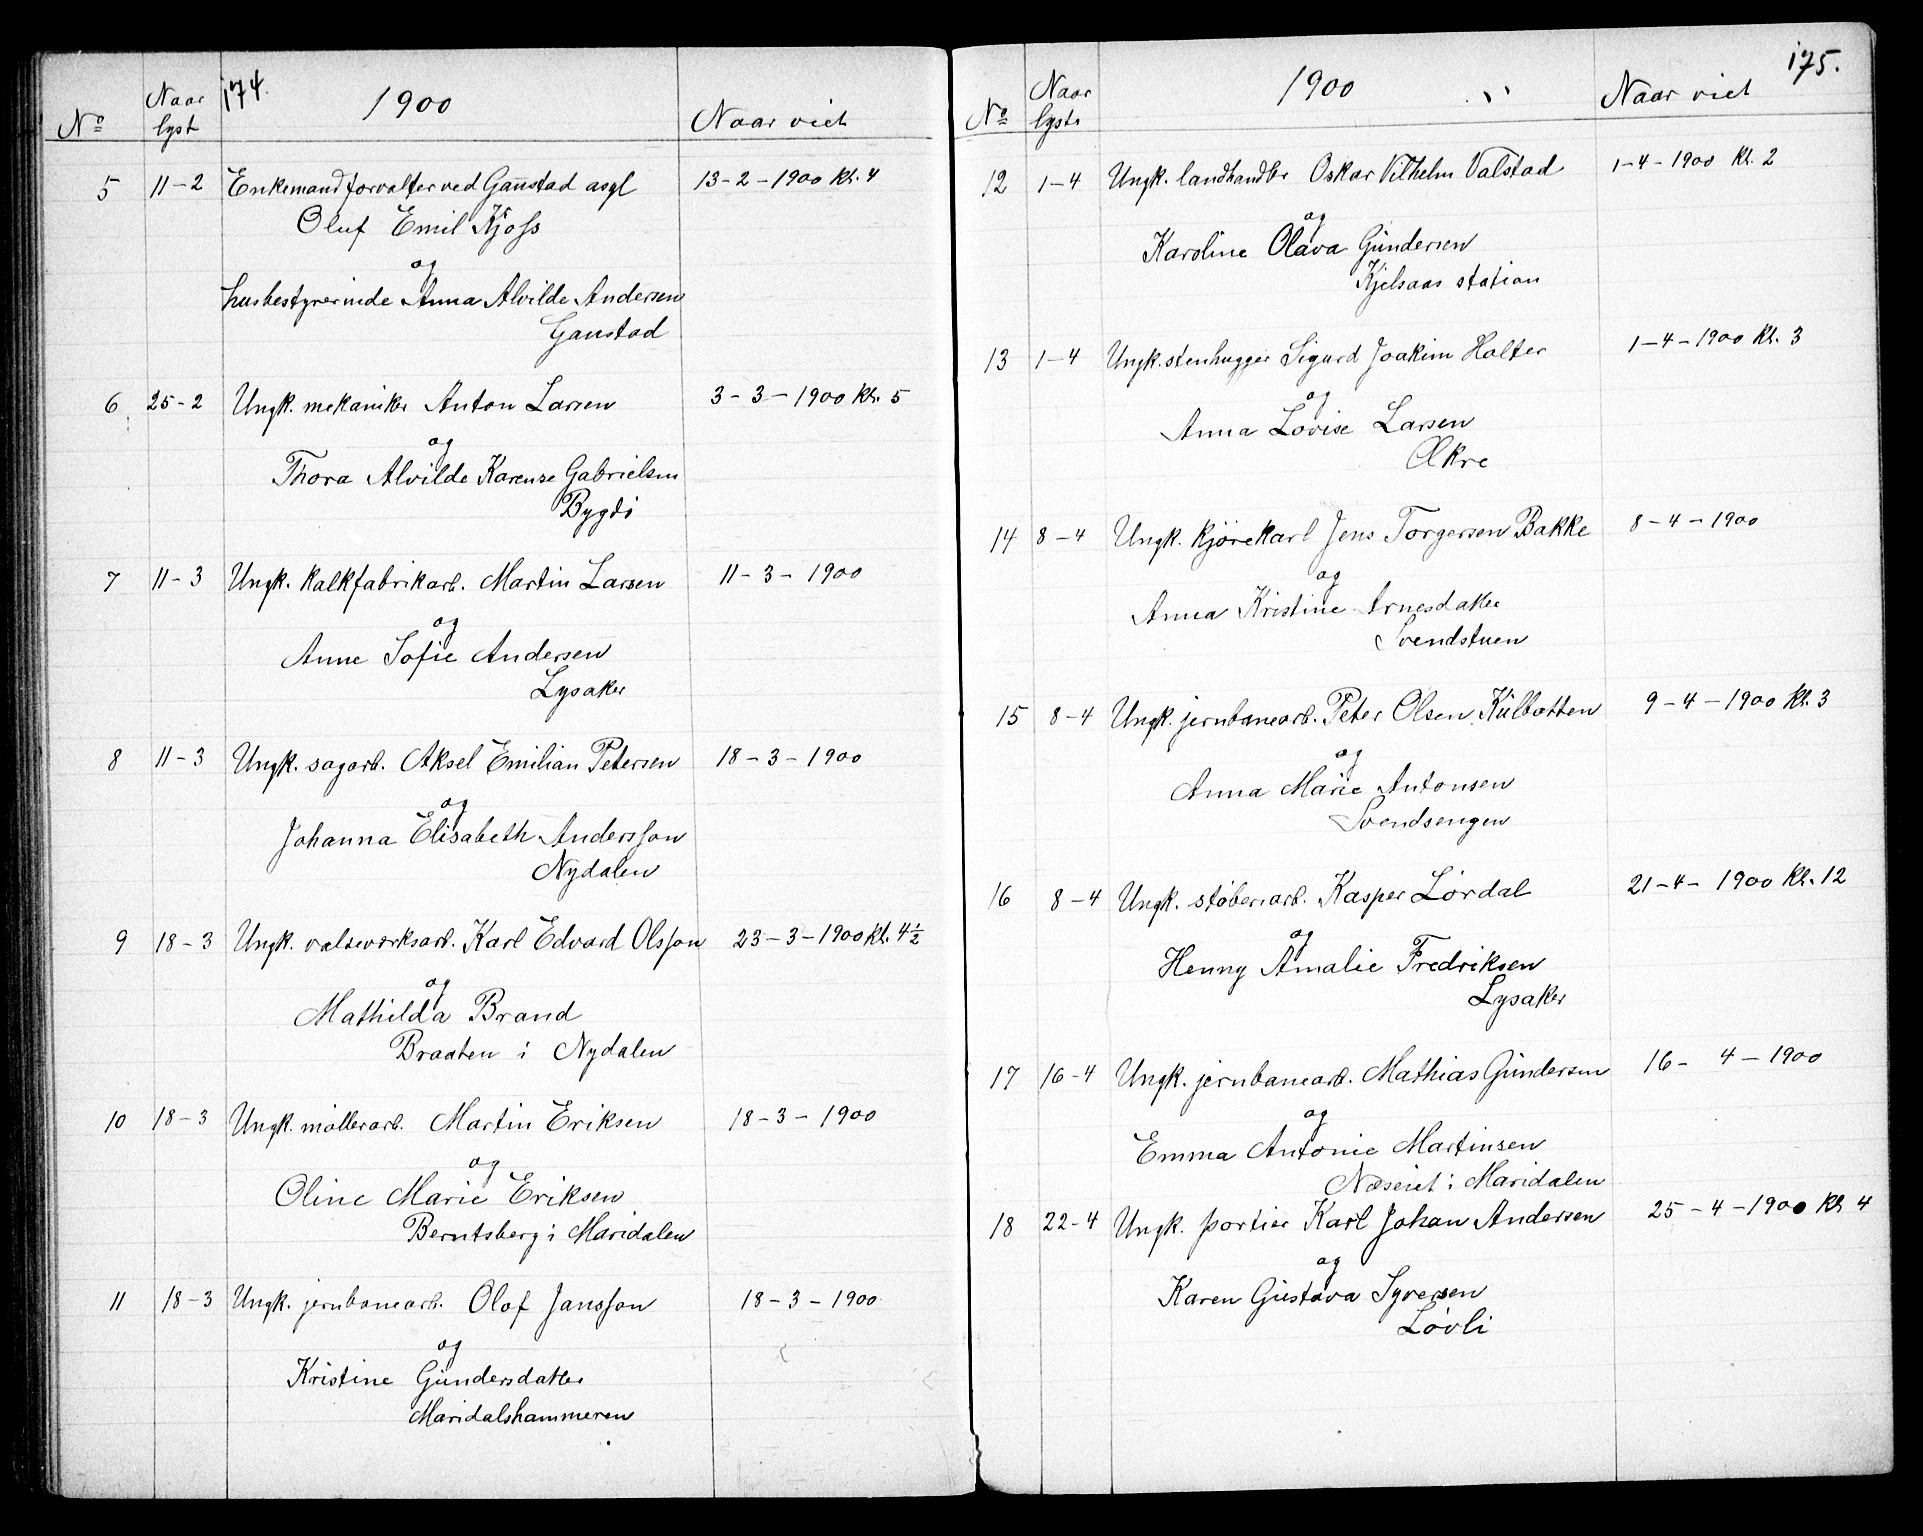 174.
1900
No
Naar lyst
Naar viet
5 11-2 Enkemand forvalter ved Gaustad asyl 13-2-1900 Kl. 4
Oluf Emil Kjoss
og
husbestyrerinde Anna Alvilde Andersen
Gaustad
6 25-2 Ungk. mekaniker Anton Larsen 3-3-1900 Kl. 5
og
Thora Alvilde Karense Gabrielsen
Bygdö
7 11-3 Ungk. Kalkfabrikarb. Martin Larsen 11-3-1900
og
Anne Sofie Andersen
Lysaker
8 11-3 Ungk. sagarb. Aksel Emilian Petersen 18-3-1900
og
Johanna Elisabeth Andersson
Nydalen
9 18-3 Ungk. valseværksarb. Karl Edvard Olsson 23-3-1900 Kl. 4½
og
Mathilda Brand
Braaten i Nydalen
10 18-3 Ungk. møllerarb. Martin Eriksen 18-3-1900
og
Oline Marie Eriksen
Berntsberg i Maridalen
11 18-3 Ungk. jernbanearb. Olof Jansson 18-3-1900
og
Kristine Gundersdatter
Maridalshammeren
175.
1900
No
Naar lyst
Naar viet
12 1-4 Ungk. landhandler Oskar Vilhelm Valstad 1-4-1900 Kl. 2
og
Karoline Olava Gundersen
Kjelsaas station
13 1-4 Ungk. stenhugger Sigurd Joakim Holter 1-4-1900 Kl. 3
og
Anna Lovise Larsen
Økre
14 8-4 Ungk. Kjørekarl Jens Torgersen Bakke 8-4-1900
og
Anna Kristine Arnesdatter
Svendstuen
15 8-4 Ungk. jernbanearb. Peter Olsen Kulbotten 9-4-1900 Kl. 3
og
Anna Marie Antonsen
Svendsengen
16 8-4 Ungk. støberiarb. Kasper Lørdal 21-4-1900 Kl. 12
og
Henny Amalie Fredriksen
Lysaker
17 16-4 Ungk. jernbanearb. Mathias Gundersen 16-4-1900
og
Emma Antonie Martinsen
Næseiet i Maridalen
18 22-4 Ungk. portier Karl Johan Andersen 25-4-1900 Kl 4
og
Karen Gustava Syversen
Løvli